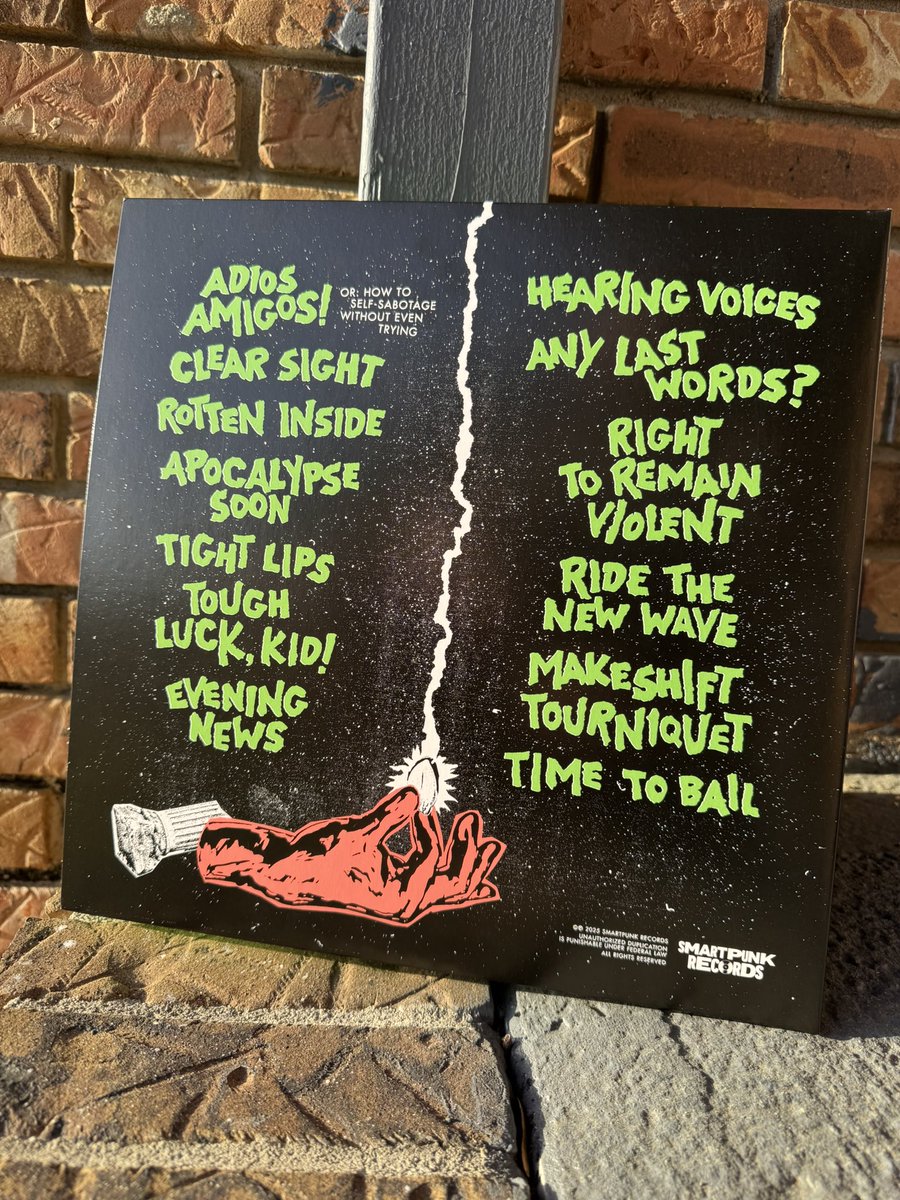 ADIOS
AMIGOS!
OR: HOW TO
SELF-SABOTAGE
WITHOUT EVEN
TRYING
CLEAR SIGHT
ROTTEN INSIDE
APOCALYPSE
SOON
TIGHT LIPS
TOUGH
LUCK, KID!
EVENING
NEWS
HEARING VOICES
ANY LAST
WORDS?
RIGHT
TO REMAIN
VIOLENT
RIDE THE
NEW WAVE
MAKESHIFT
TOURNIQUET
TIME TO BAIL
©℗ 2025 SMARTPUNK RECORDS
UNAUTHORIZED DUPLICATION
IS PUNISHABLE UNDER FEDERAL LAW
ALL RIGHTS RESERVED
SMARTPUNK
RECORDS